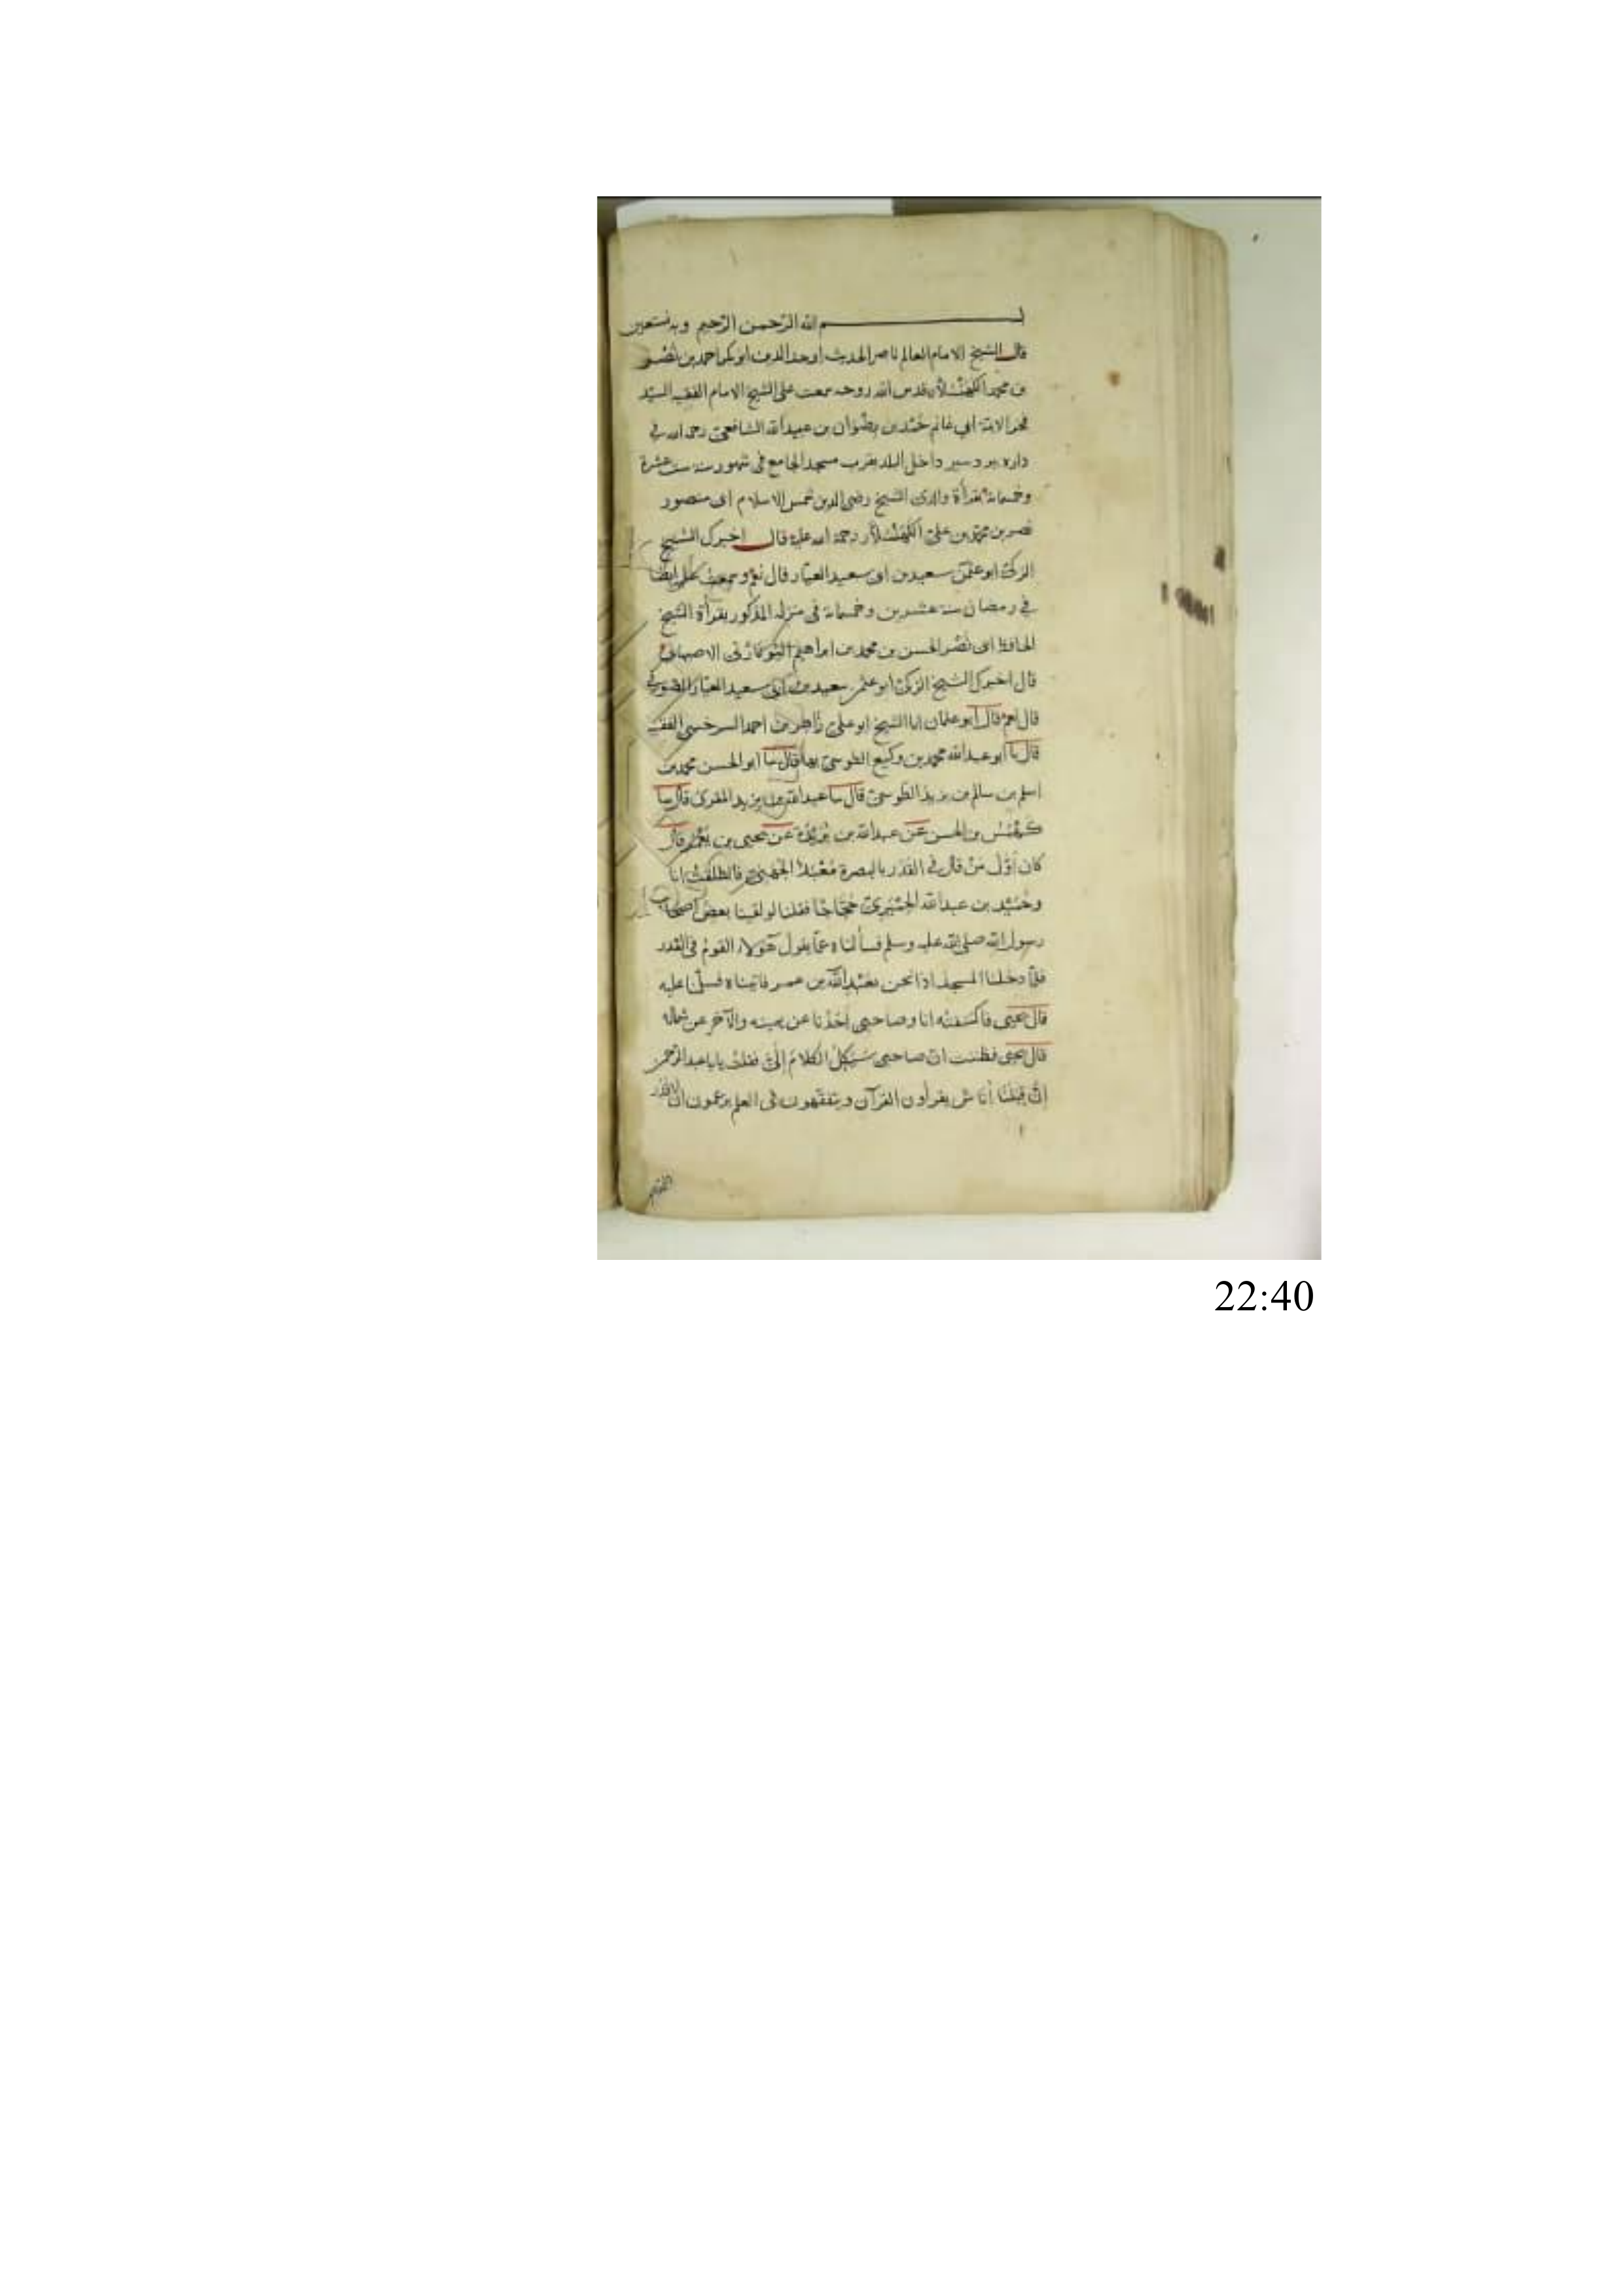 بسم الله الرحمن الرحيم وبه نستعين
قال الشيخ الامام العالم ناصر الحديث اوحد الدين ابو بكر احمد بن نصر
بن محمد قدس الله روحه سمعت على الشيخ الامام الفقيه السيد
فخر الائمة ابي غانم بن رضوان بن عبيد الله الشافعي رحمه الله في
داره داخل البلد بقرب مسجد الجامع فى شهور سنة ست عشرة
وخمسمائة بقرأة والدى الشيخ رضى الدين شمس الاسلام ابى منصور
نصر بن محمد بن على رحمة الله عليه قال اخبرك الشيخ
الزكى ابو عثمن سعيد بن ابى سعيد العيار قال نعم وسمعت عليه ايضا
في رمضان سنة عشرين وخمسمائة فى منزله المذكور بقرأة الشيخ
الحافظ ابى نصر الحسن بن محمد بن ابراهيم الاصبهاني
قال اخبرك الشيخ الزكى ابو عثمن سعيد بن ابى سعيد العيار الصوفي
قال نعم قال ابو عثمان انا الشيخ ابو على زاهر بن احمد السرخسى الفقيه
قال نا ابو عبد الله محمد بن وكيع الطوسى بها قال نا ابو الحسن محمد بن
اسلم بن سالم بن يزيد الطوسى قال نا عبد الله بن يزيد المقرئ قال نا
كهمس بن الحسن عن عبد الله بن بريدة عن يحيى بن يعمر قال
كان اول من قال في القدر بالبصرة معبد الجهني فانطلقت انا
وحميد بن عبد الله الحميرى حجاجا فقلنا لو لقينا بعض اصحاب
رسول الله صلى الله عليه وسلم فسألناه عما يقول هؤلاء القوم فى القدر
فلما دخلنا المسجد اذا نحن بعبد الله بن عمر فاتيناه فسلمنا عليه
قال يحيى فاكتنفته انا وصاحبي احدنا عن يمينه والآخر عن شماله
قال يحيى فظننت ان صاحبى سيكل الكلام الى فقلت يا با عبد الرحمن
ان قبلنا أناس يقرأون القرآن ويتفقهون فى العلم يزعمون ان لا قدر
22:40